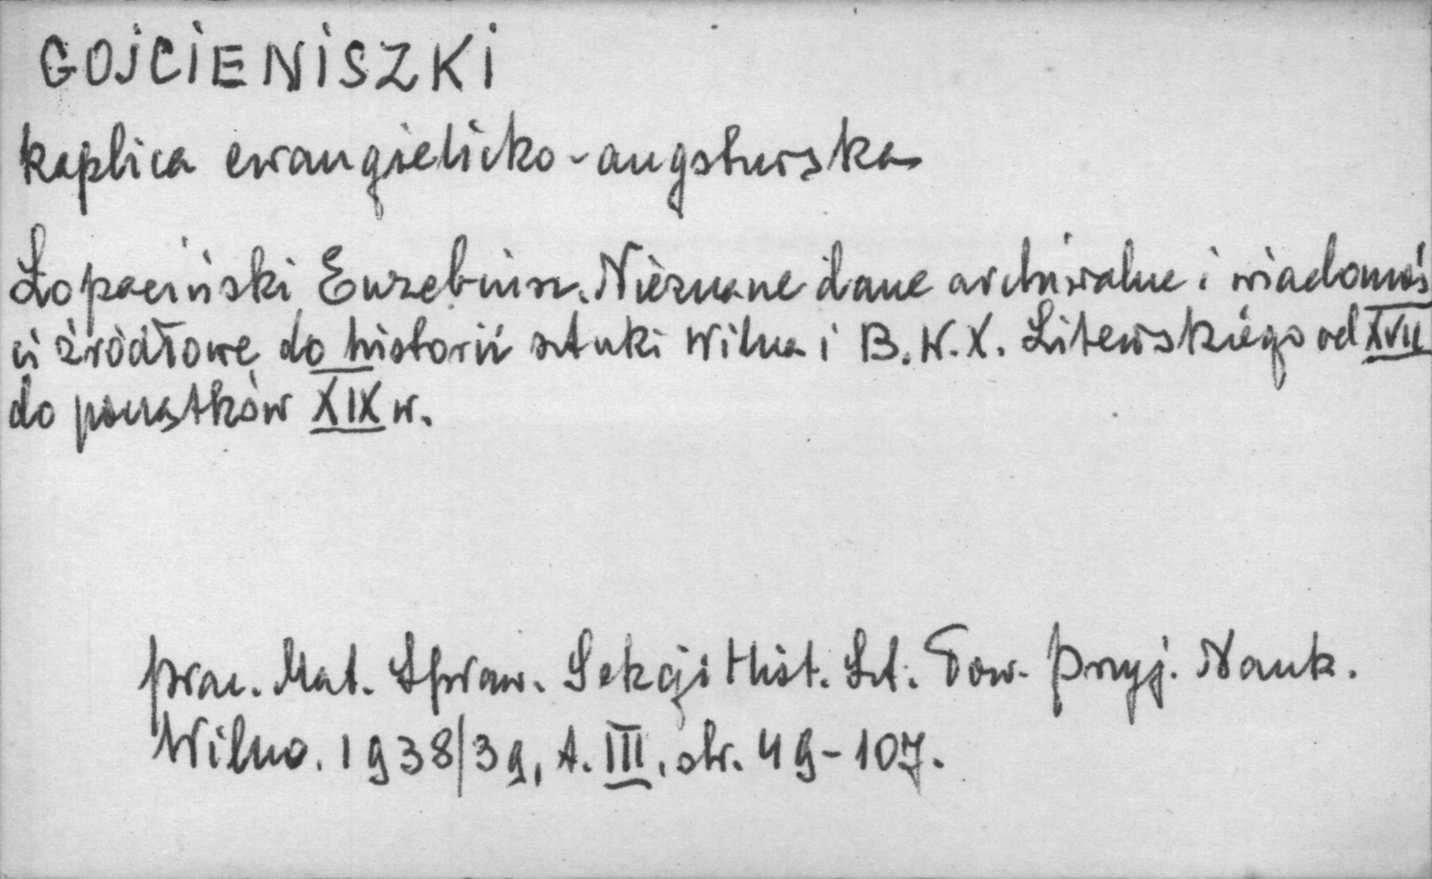 GOJCIENISZKI
kaplica ewangielicko-augsburska
Łopaciński Euzebiusz. Nieznane dane archiwalne i wiadomoś
ci źródłowe do historii sztuki Wilna i B. W. X. Litewskiego od XVII
do początków XIX w.
Prac. Mat. Spraw. Sekcji Hist. Szt. Tow. Przyj. Nauk.
Wilno. 1938/39, t. III, str. 49-107.